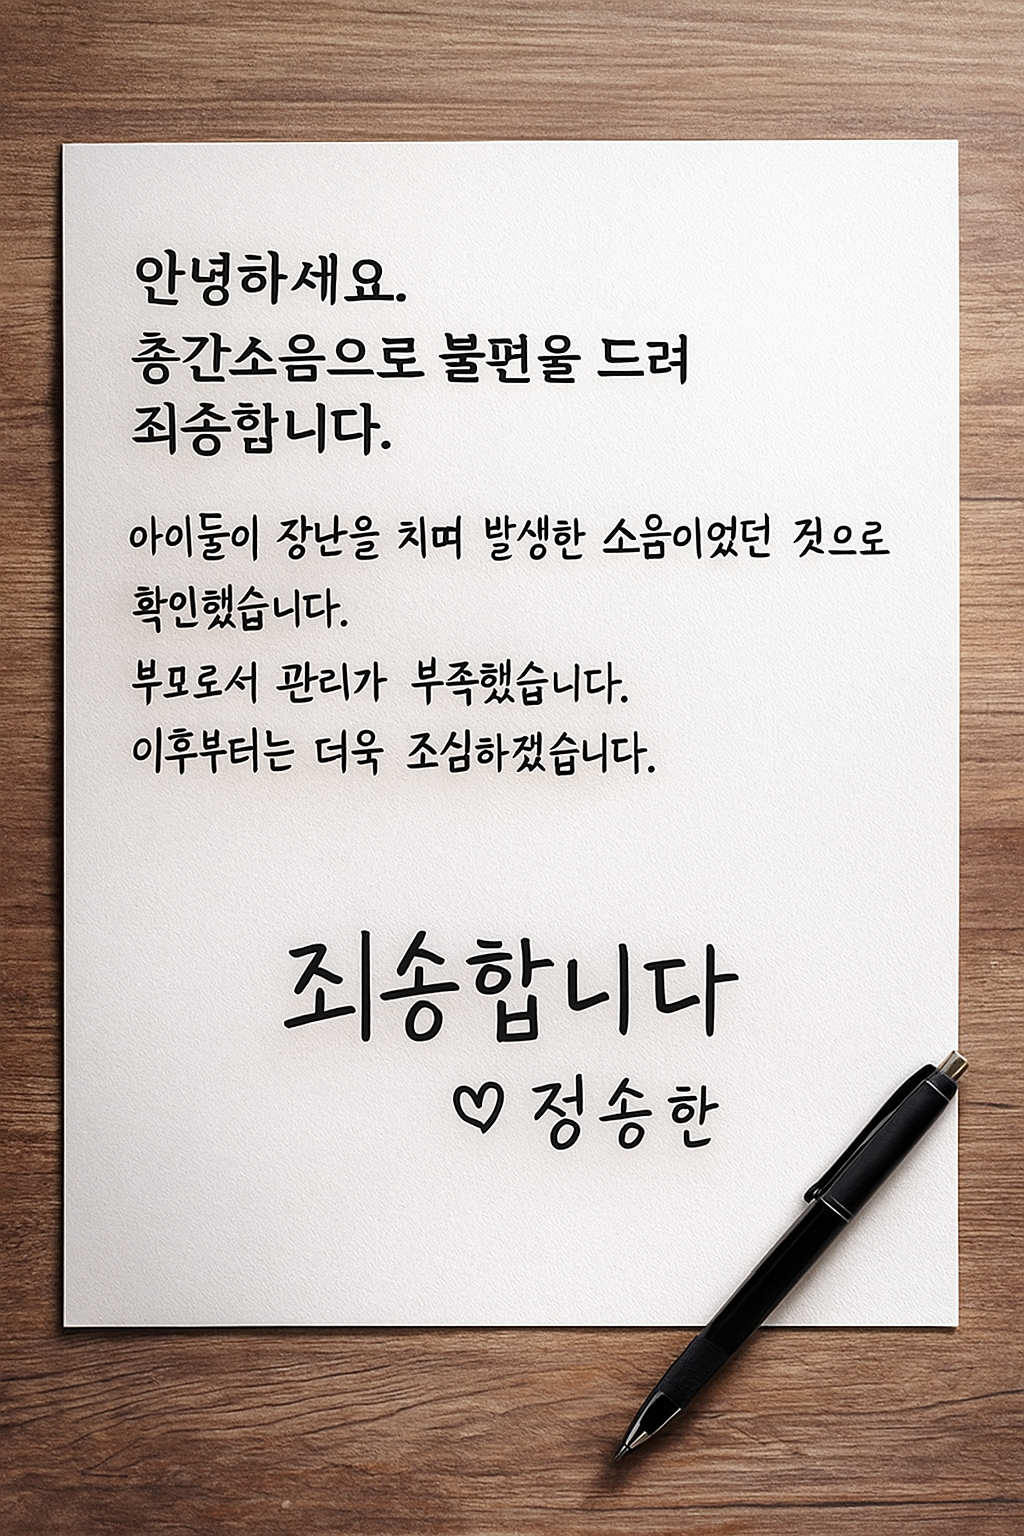 안녕하세요.
층간소음으로 불편을 드려
죄송합니다.
아이둘이 장난을 치며 발생한 소음이었던 것으로
확인했습니다.
부모로서 관리가 부족했습니다.
이후부터는 더욱 조심하겠습니다.
죄송합니다
♡ 정송한